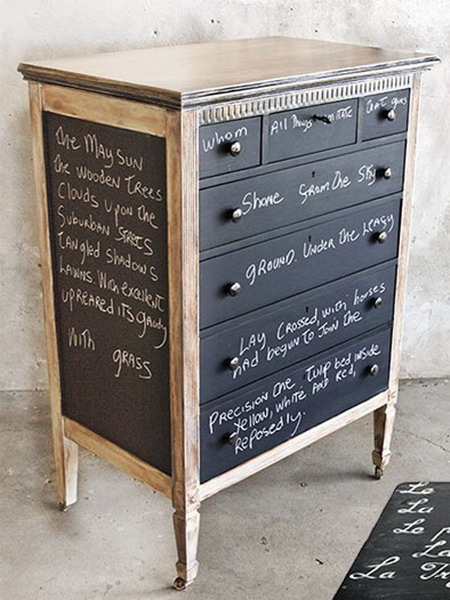 The May Sun
the wooden Trees
Clouds upon the
Suburban Streets
Tangled Shadows
Lawns. With excellent
upreared its gaudy
With
grass
Whom
All Things imitate
that guy
Shone from the Sky
GROUND. Under the Leafy
LAY Crossed, with horses
had begun to join the
Precision the Tulip bed inside
Yellow, white and Red,
Reposedly.
Le
La
Le
La
La